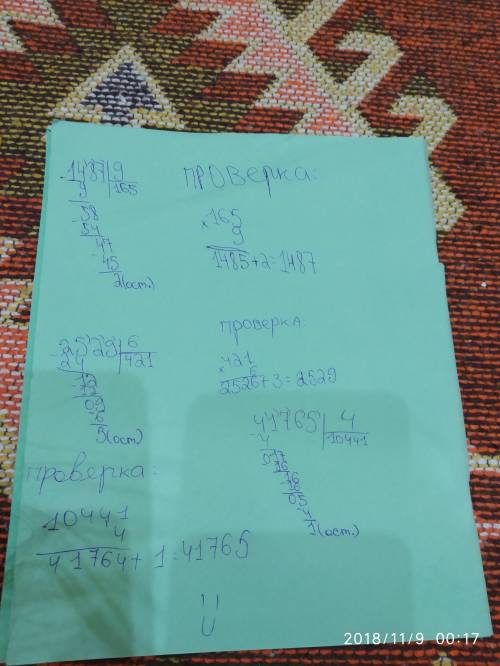 1487|9
9 |165
58
54
47
45
2(ост.)
Проверка:
×165
9
1485+2=1487
2529|6
24 |421
12
12
09
6
3(ост)
проверка:
×421
6
2526+3=2529
41765|4
4 |10441
017
16
16
16
05
4
1(ост.)
проверка:
10441
4
41764+1=41765
2018/11/9 00:17